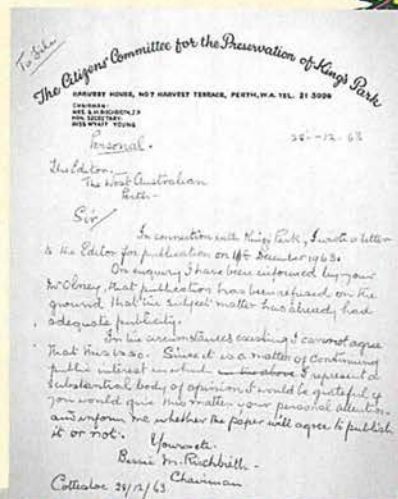 To File
The Citizens' Committee for the Preservation of King's Park
HARVEST HOUSE, NO 7 HARVEST TERRACE, PERTH, W.A. TEL. 21 5004
CHAIRMAN:
MRS. B. M. RISCHBIETH, J.P.
HON. SECRETARY:
MISS WYATT YOUNG
28-12-63
Personal.
The Editor,
The West Australian
Perth-
Sir/
In connection with King's Park, I wrote a letter
to the Editor for publication on 14th December 1963.
On enquiry I have been informed by your
Mr Olney, that publication has been refused on the
ground that the subject matter has already had
adequate publicity.
In the circumstances existing I cannot agree
that this is so. Since it is a matter of continuing
public interest in which I represent a
substantial body of opinion I would be grateful if
you would give this matter your personal attention
and inform me whether the paper will agree to publish
it or not.
Yours etc.
Bessie M. Rischbieth -
Chairman
Cottesloe 28/12/63